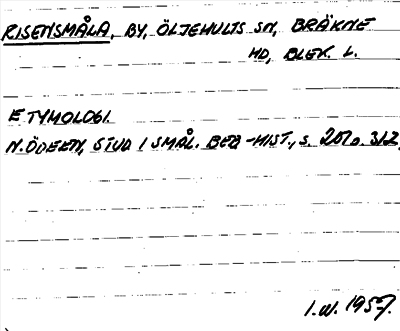 RISENSMÅLA, BY, ÖLJEHULTS SN, BRÄKNE
HD, BLEK. L.
ETYMOLOGI.
N. ÖDEEN, STUD I SMÅL. BEB-HIST., S. 207 o. 312
I.W. 1957.